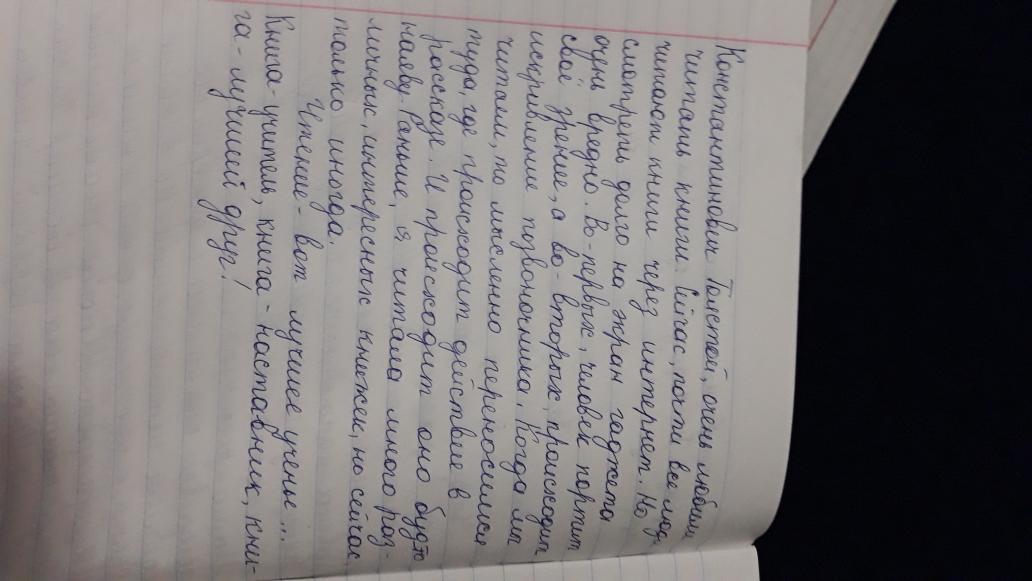 Константинович Толстой, очень любил
читать книги. Сейчас, почти все люди
читают книги через интернет. Но,
смотреть долго на экран гаджета
очень вредно. Во-первых, человек портит
своё зрение, а во-вторых, происходит
искривление позвоночника. Когда мы
читаем, то мысленно переносимся
туда, где происходит действие в
рассказе. И происходит оно будто
наяву. Раньше, я читала много раз-
личных, интересных книжек, но сейчас
только иногда.
Чтение - вот лучшее ученье ...
Книга - учитель, книга - наставник, кни-
га - лучший друг!